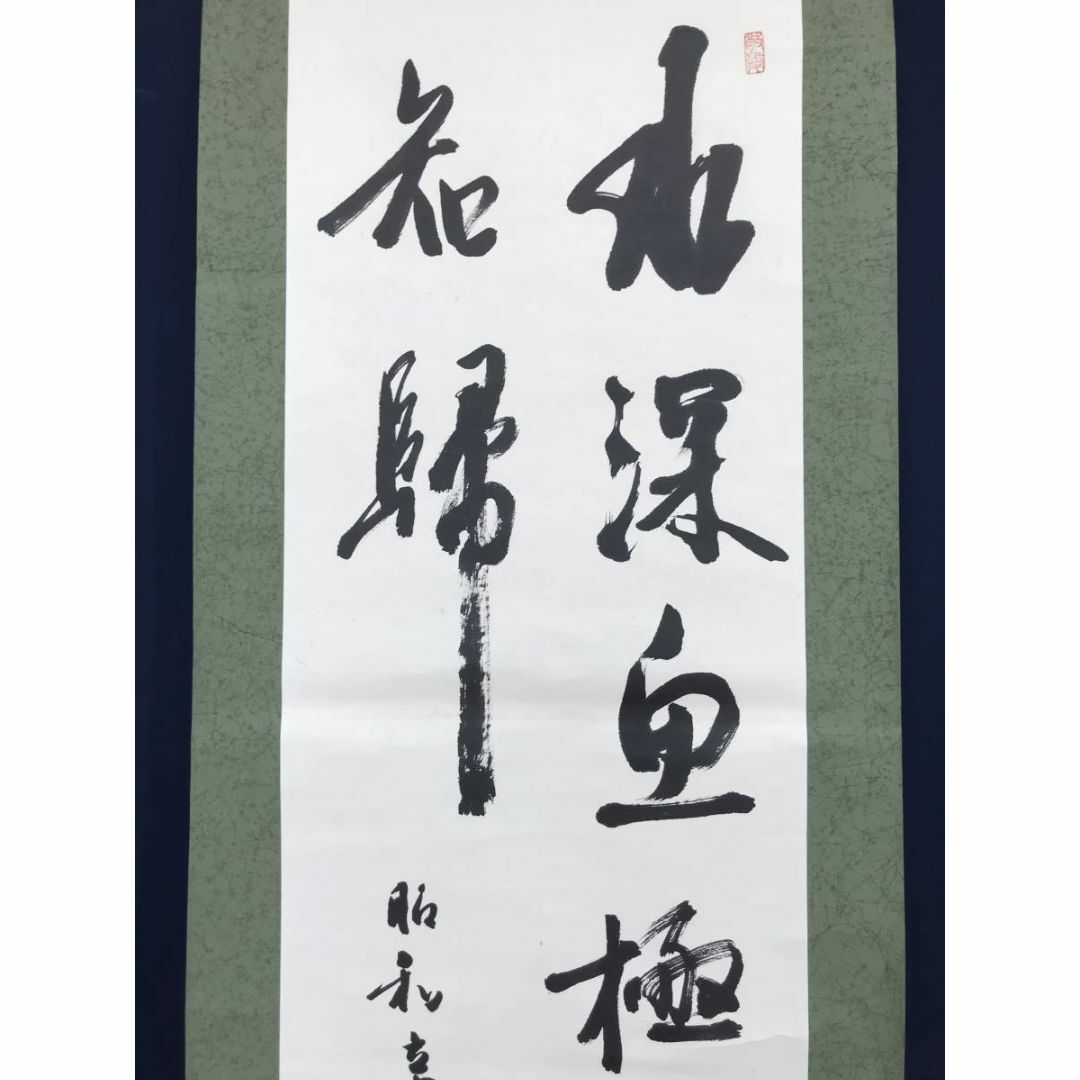 水深魚極
知歸
昭和